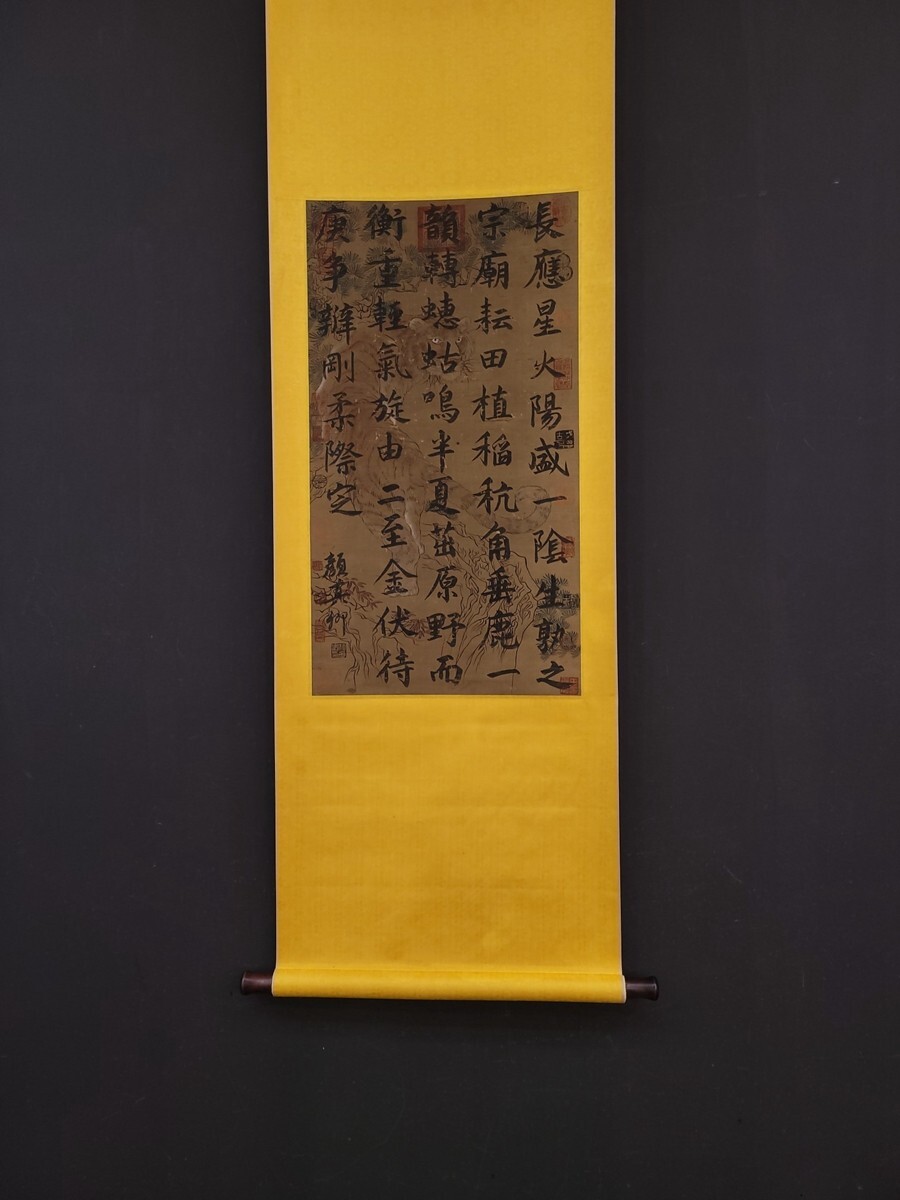 長應星火陽盛一陰生孰之
宗廟耘田植稻秔角垂鹿一
韻轉蟪蛄鳴半夏茁原野而
衡重輕氣旋由二至金伏待
庚爭辯剛柔際定
顏真卿